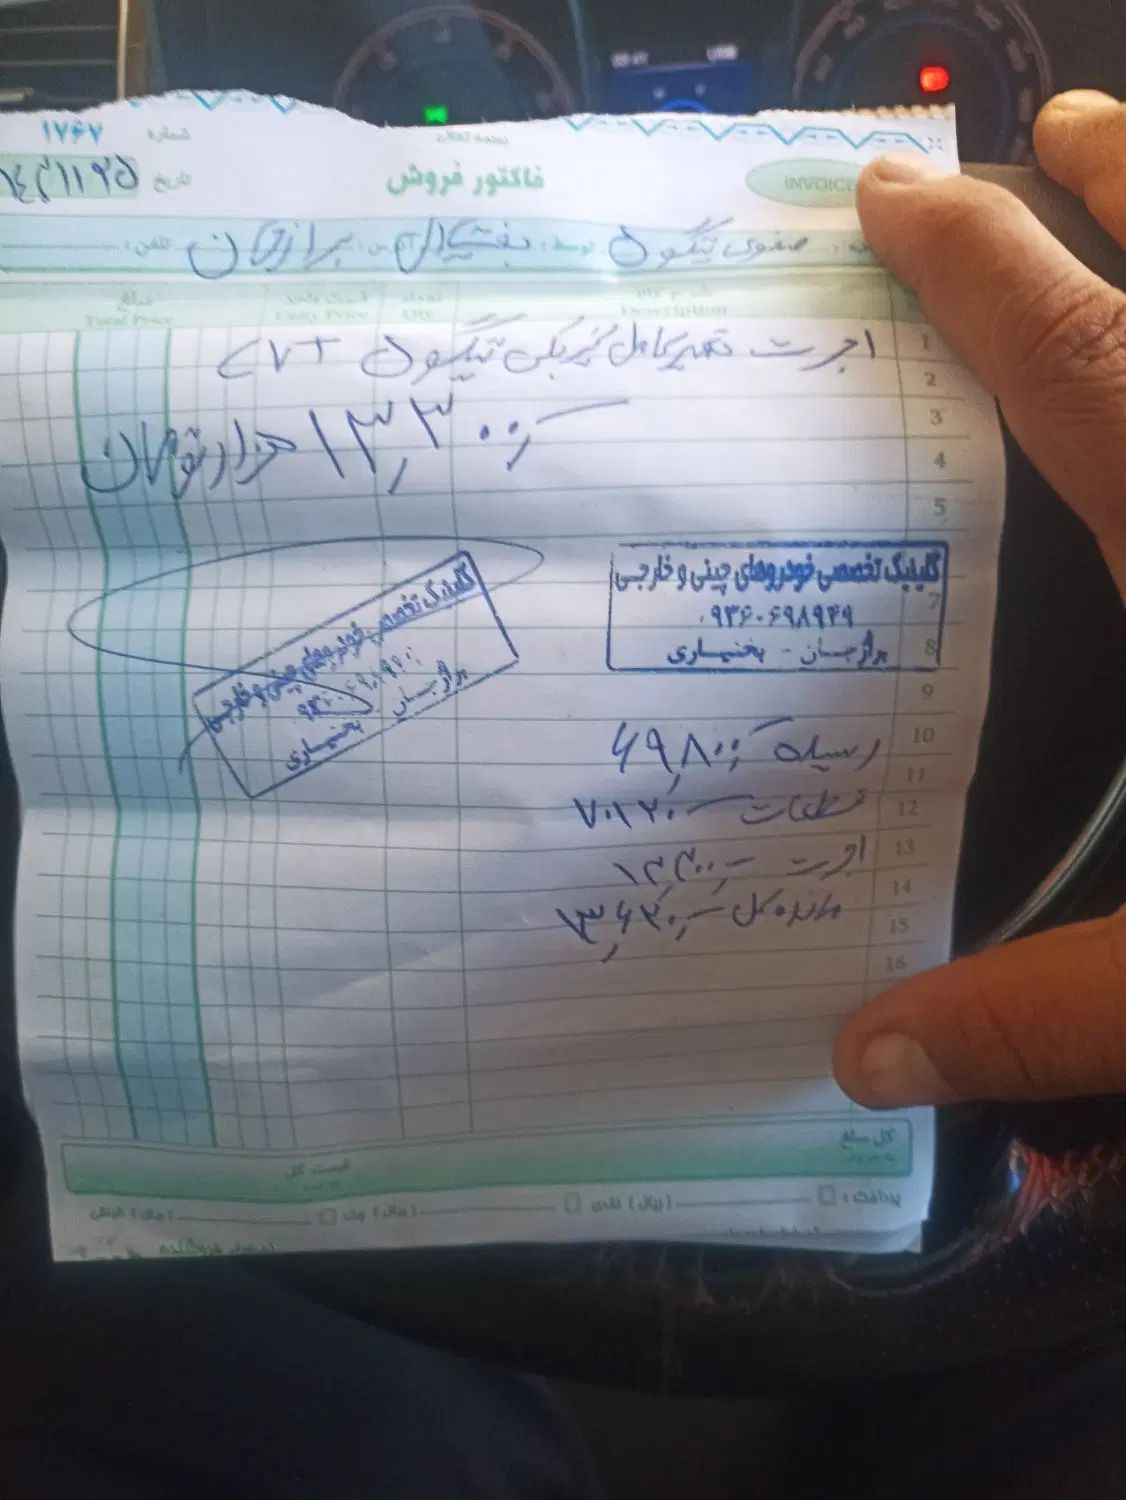 بسمه تعالی
شماره ۱۷۶۷
INVOICE
فاکتور فروش
تاریخ
صفوی تیگون توسط: بختیاری آدرس: برازجان تلفن:
Description
تعداد Qty
قیمت واحد Unity Price
مبلغ Total Price
1 اجرت تعمیر کامل گیربکس تیگو ۵ CVT
2
3 ۱۳,۳۰۰,۰۰۰ هزار تومان
4
5
کلینیک تخصصی خودروهای چینی و خارجی
7
۰۹۳۶۰۶۹۸۹۴۹
8
برازجان - بختیاری
کلینیک تخصصی خودروهای چینی و خارجی
برازجان بختیاری
9
10 رسیده ۶۹,۸۰۰
11
12 قطعات ۷۰,۱۲۰
13 اجرت ۱۳,۳۰۰
14
15 مانده کل ۱۳,۶۲۰
16
کل مبلغ
قیمت کل
پرداخت: (ریال) نقدی (ریال) چک (ریال) الباقی